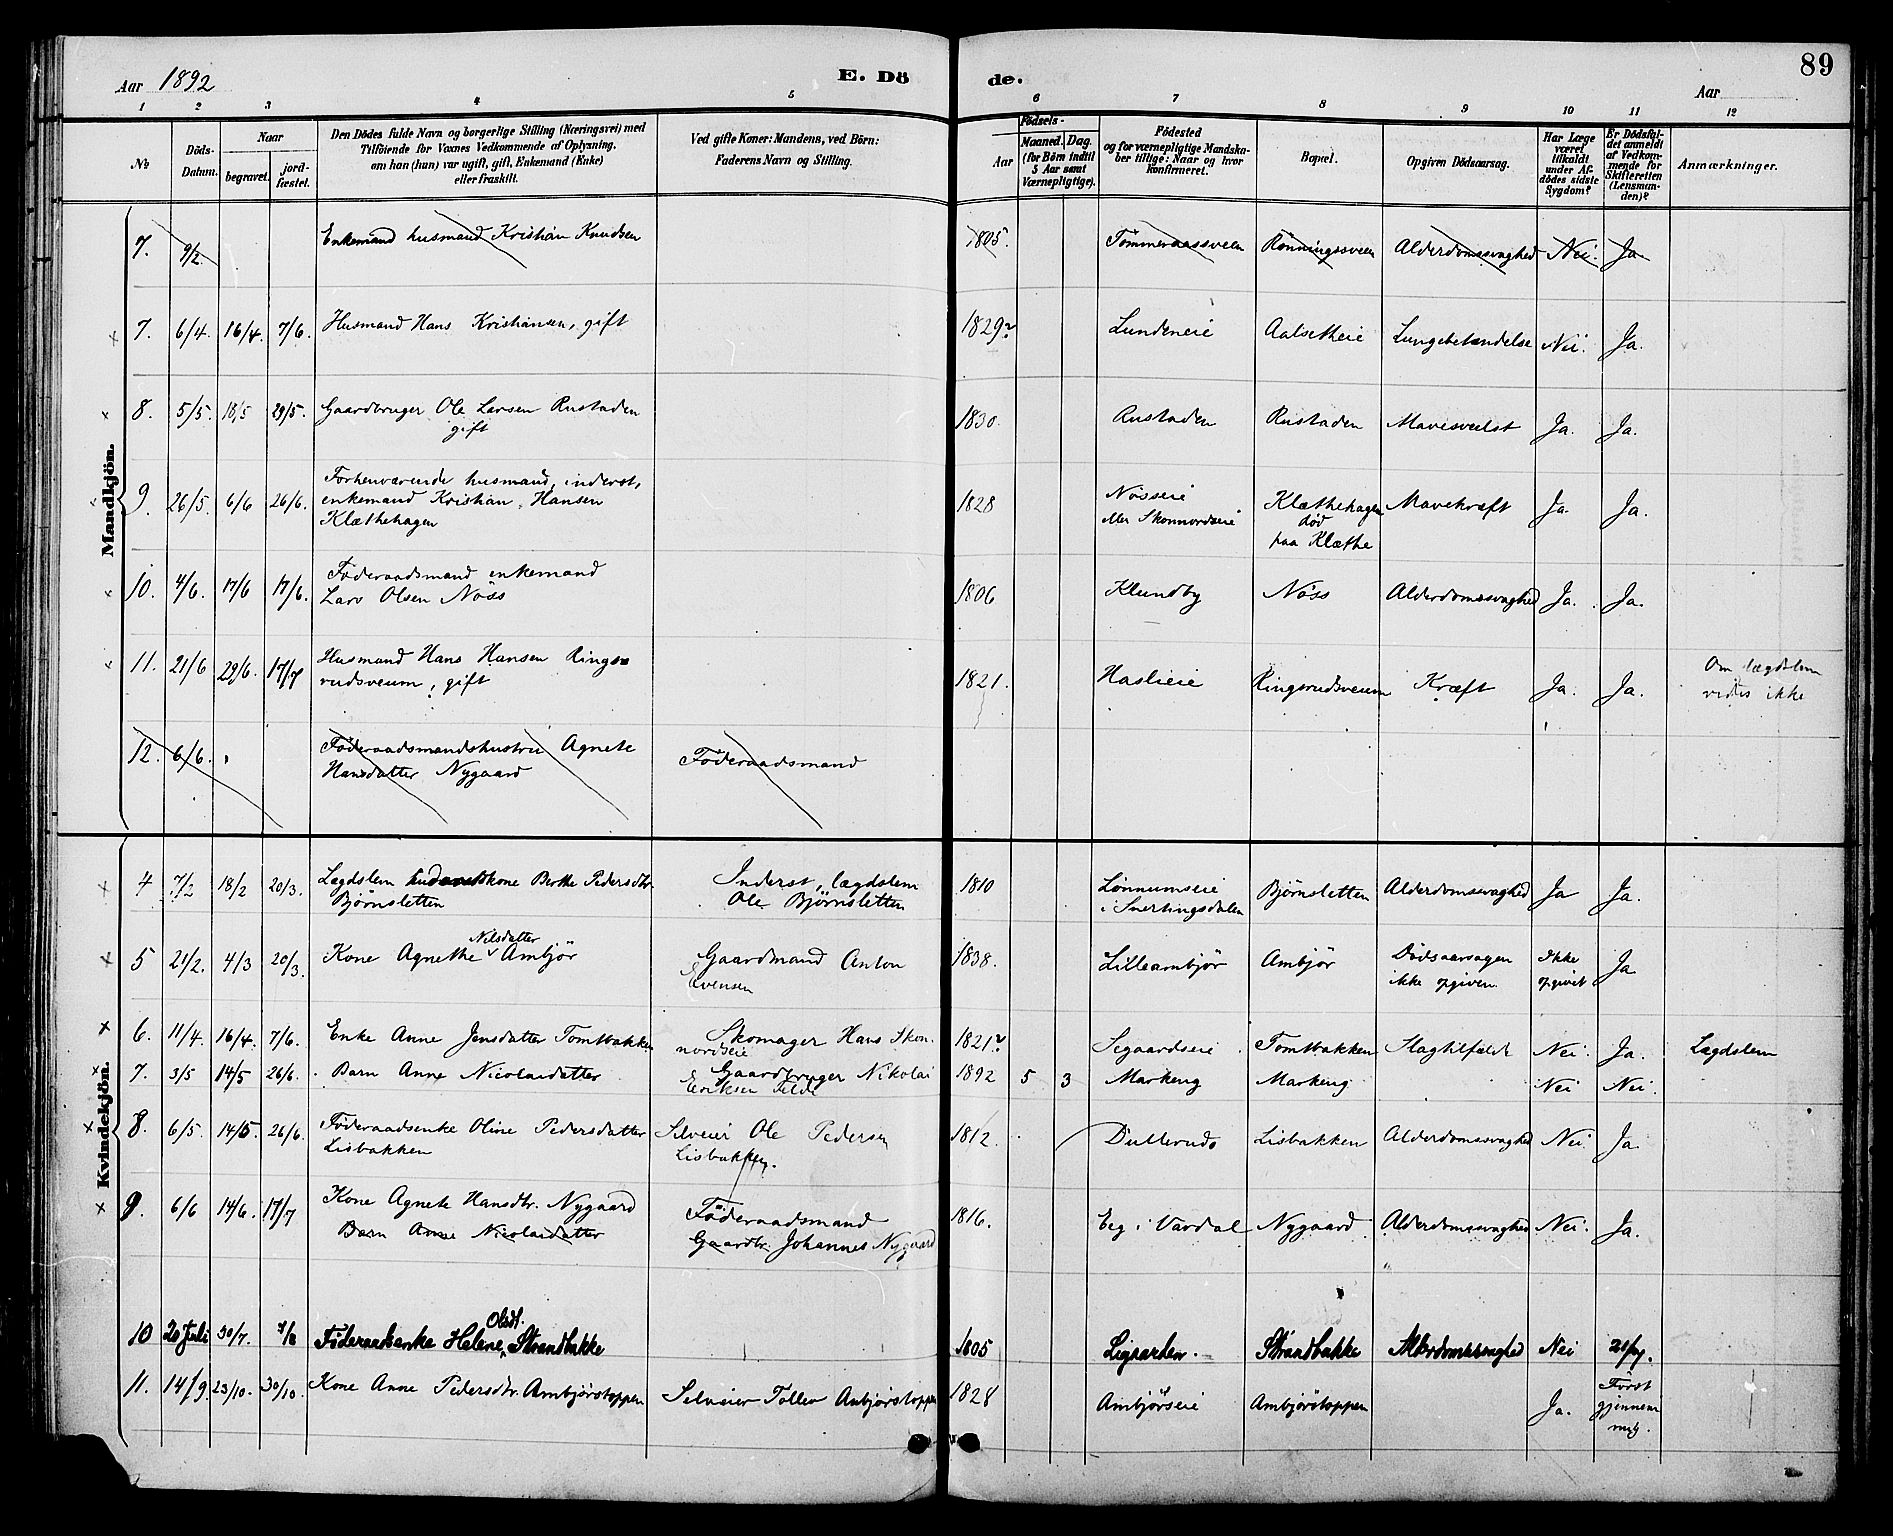 Aar 1892 E. Dö de. 89
Aar
1 2 3 4 5 6 7 8 9 10 11 12
No
Döds-Datum.
Naar
begravet.
jord-fæstet.
Den Dödes fulde Navn og borgerlige Stilling (Næringsvei) med
Tilföiende for Voxnes Vedkommende af Oplysning.
om han (hun) var ugift, gift, Enkemand (Enke)
eller fraskilt.
Ved gifte Koner: Mandens, ved Börn:
Faderens Navn og Stilling.
Födsels-
Aar
Maaned. Dag.
(for Börn indtil
5 Aar samt
Værnepligtige).
Födested
og for værnepligtige Mandska-
ber tillige: Naar og hvor
konfirmeret.
Bopæl.
Opgiven Dödsaarsag.
Har Læge
været
tilkaldt
under Af-
dödes sidste
Sygdom?
Er Dödsfal-
det anmeldt
af Vedkom-
mende for
Skifteretten
(Lensman-
den)?
Anmærkninger.
Mandkjön.
7. 9/2. Enkemand husmand Kristian Knudsen 1805. Tömmeraassveen Rönningssveen Alderdomssvaghed Nei. Ja
7. 6/4. 16/4. 7/6. Husmand Hans Kristiansen, gift 1829? Lundeneie Aalsetheie Lungebetændelse Nei. Ja.
8. 5/5. 18/5 29/5. Gaardbruger Ole Larsen Rustaden 1830. Rustaden Rustaden Ja. Ja.
gift
9. 26/5. 6/6 26/6. Forhenværende husmand, inderst,
enkemand Kristian Hansen
Klæthehagen
1828 Nösseie
eller Skonnordseie
Klæthehagen
död
paa Klæthe
Mavekræft Ja. Ja.
10. 4/6. 17/6 17/6. Föderaadsmand enkemand
Lars Olsen Nöss
1806 Klundby Nöss Alderdomssvaghed Ja. Ja.
11. 21/6 29/6. 17/7 Husmand Hans Hansen Rings-
rudsveum, gift
1821. Haslieie Ringsrudsveum Kræft Ja. Ja. Om lægdslem
vides ikke
12. 6/6. Föderaadsmandshustru Agnete
Hansdatter Nygaard
Föderaadsmand
Kvindekjön.
4 7/2 18/2 20/3. Lægdslem kone Berthe Pedersdtr.
Bjørnsletten
Inderst, lægdslem
Ole Bjørnsletten
1810 Lönnumseie
i Snertingsdalen
Bjørnsletten Alderdomssvaghed Ja Ja.
5 21/2. 4/3 20/3. Kone Agnethe Nilsdatter Ambjör
Gaardmand Anton
Evensen
1838. Lilleambjör Ambjör Dödsaarsagen
ikke opgiven
Ikke
opgivet
Ja
6. 11/4. 16/4. 7/6. Enke Anne Jensdatter Tomtbakken
Skomager Hans Skon-
nordseie
1821? Segaardseie Tomtbakken Slagtilfælde Nei. Ja. Lægdslem
7. 3/5 14/5 26/6. Barn Anne Nicolaidatter
Gaardbruger Nikolai
Eriksen
1892 5 3 Markeng Markeng Nei Nei
8. 6/5. 14/5. 26/6. Föderaadsenke Oline Pedersdatter
Lisbakken
Selveier Ole Pedersen
Lisbakken.
1812. Dullerud Lisbakken Alderdomssvaghed Nei. Ja.
9. 6/6 14/6. 17/7 Kone Agnete Hansdtr. Nygaard
Barn Anne Nicolaidatter
Föderaadsmand
Gaardbr. Johannes Nygaard
1816. Eeg i Vardal Nygaard Alderdomssvaghed Nei. Ja.
10 20 Juli 30/7. Föderaadsenke Helene Olsdt. Strandbakke 1805 Strandbakke Alderdomssvaghed Nei
11. 14/9. 23/10. 30/10. Kone Anne Pedersdtr. Ambjörstoppen Selveier Tollev Anbjörstoppen 1828 Ambjörseie Ambjörstoppen Ja. Först
gjennem
mig.